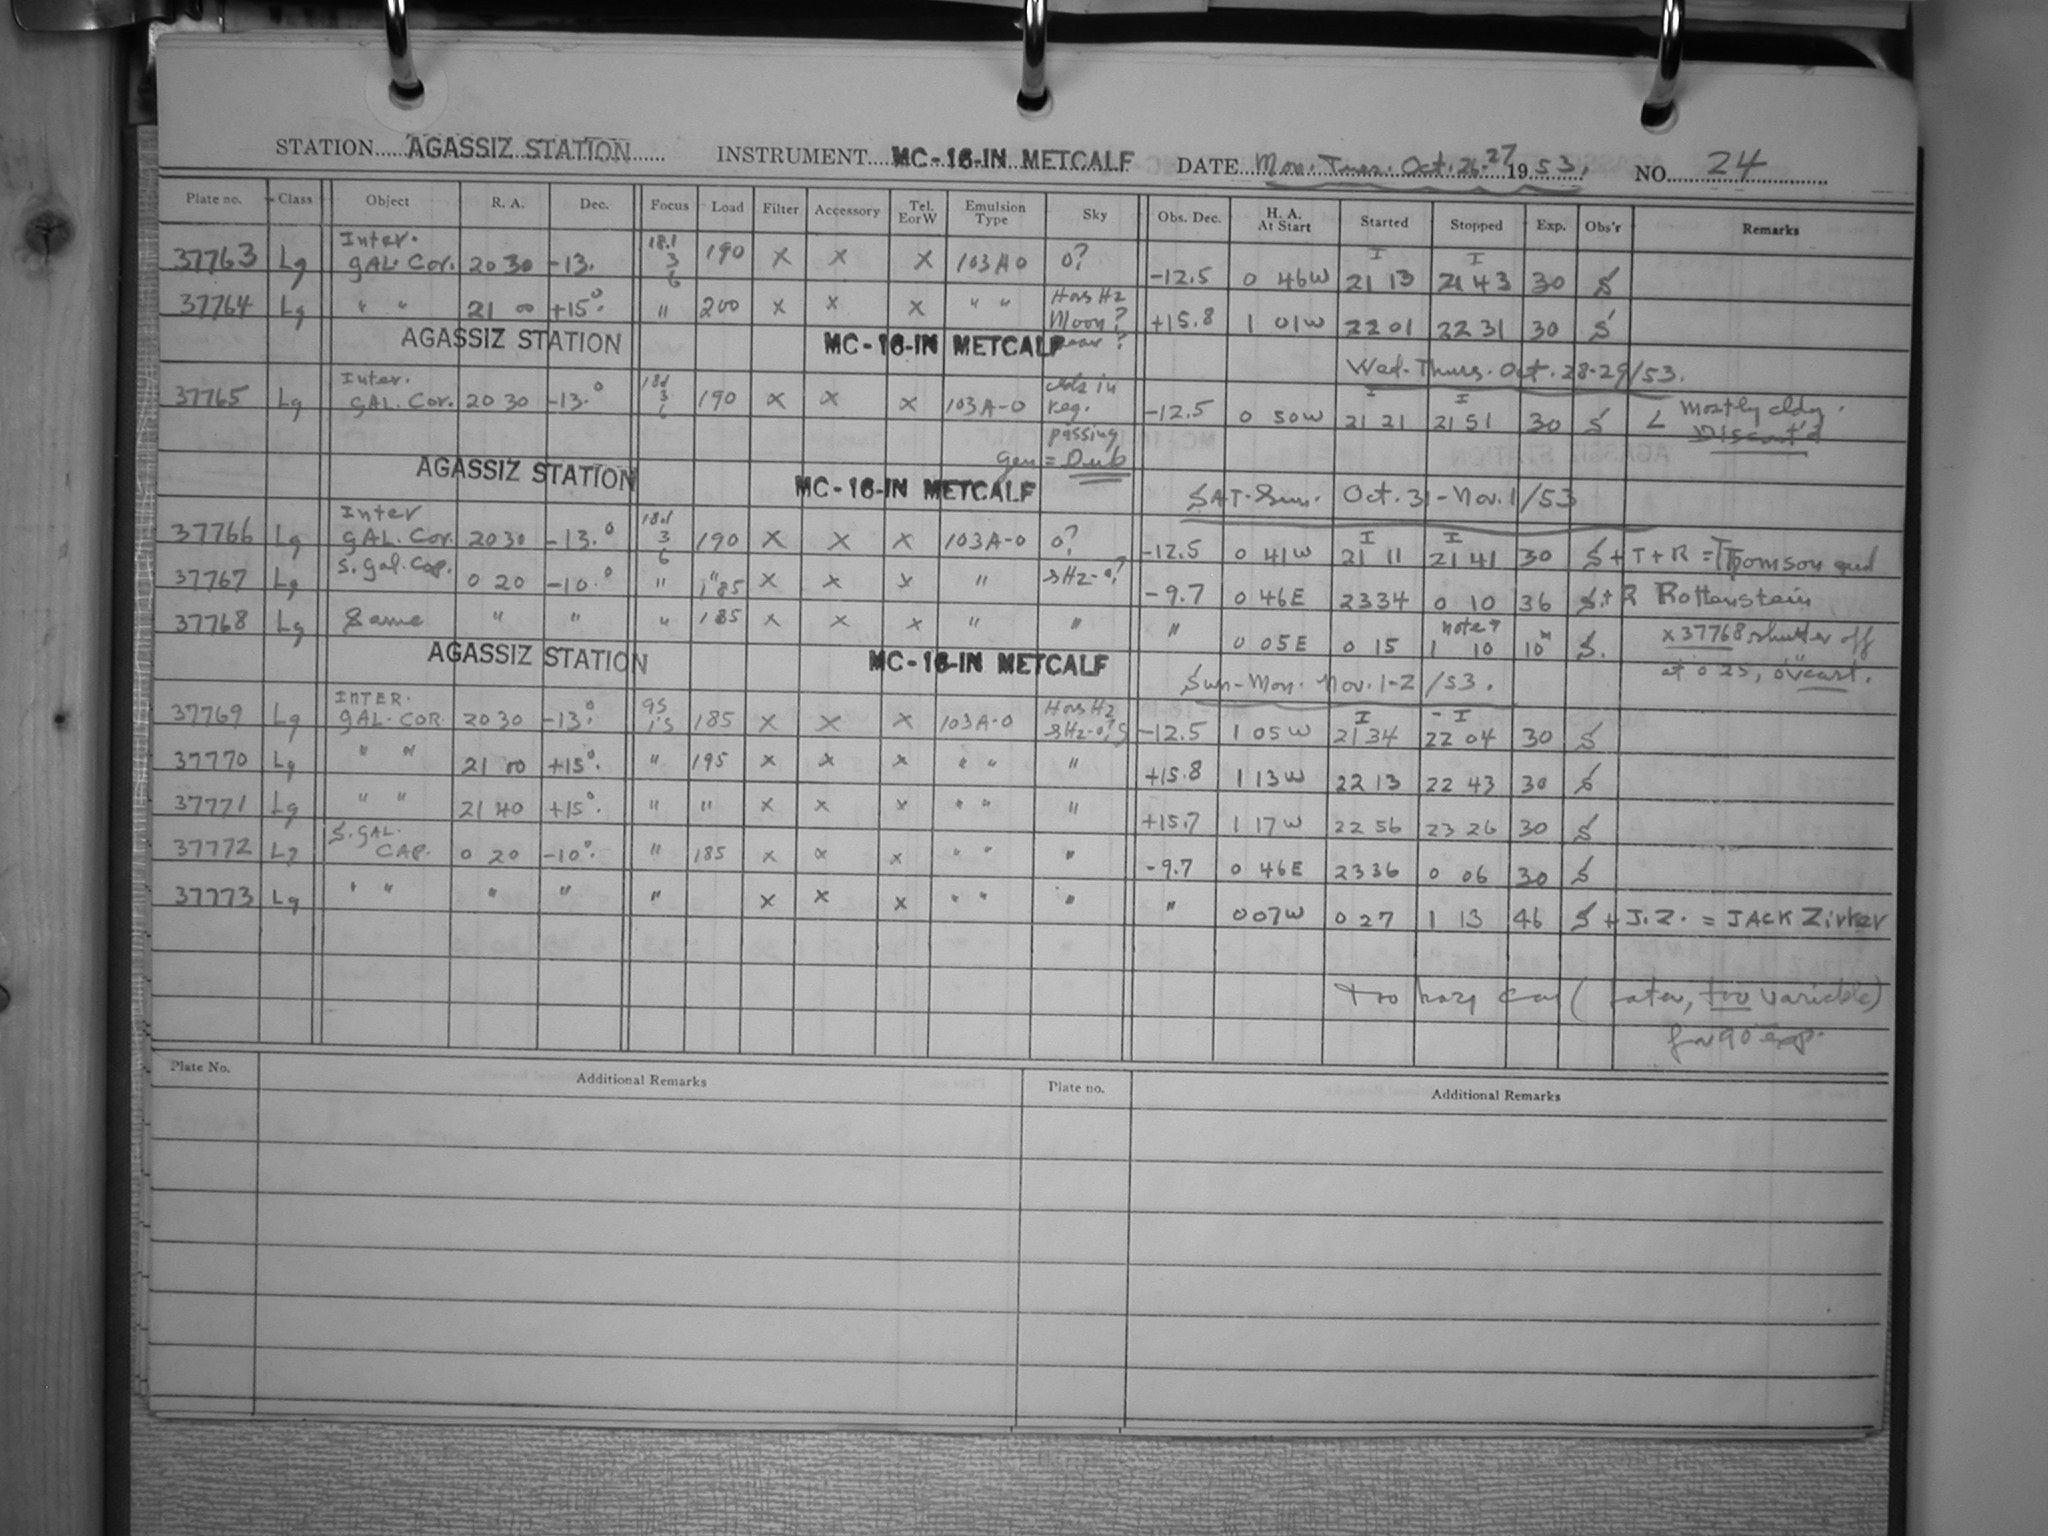 STATION AGASSIZ STATION INSTRUMENT MC-16-IN METCALF DATE Mon. Tues. Oct. 26-27 1953. NO. 24
Plate no. Class Object R. A. Dec. Focus Load Filter Accessory Tel. E or W Emulsion Type Sky Obs. Dec. H. A. At Start Started Stopped Exp. Obs'r Remarks
37763 Lg Inter. GAL. Cor. 20 30 -13. 18.1 3 6 190 X X X 103 A 0 0? -12.5 0 46W I 21 13 I 21 43 30 S
37764 Lg " " 21 00 +15°. " 200 X X X " " Hors Hz Moon? +15.8 1 01W 22 01 22 31 30 S
AGASSIZ STATION MC-16-IN METCALF Wed-Thurs. Oct. 28-29/53.
37765 Lg Inter. GAL. Cor. 20 30 -13.° 3 6 190 X X X 103A-0 in reg. passing -12.5 0 50W I 21 21 I 21 51 30 S L Mostly cldy. Discont'd
gen = Dub
AGASSIZ STATION MC-16-IN METCALF SAT-Sun. Oct. 31-Nov. 1/53
37766 Lg Inter GAL. Cor. 20 30 -13.° 18.1 3 6 190 X X X 103A-0 0? -12.5 0 41W I 21 11 I 21 41 30 S + T + R = Thomson and
37767 Lg S. Gal. Cap. 0 20 -10.° " 185 X X X " sHz-0? -9.7 0 46E 23 34 0 10 36 S.+ R Rottenstein
37768 Lg Same " " " 185 X X X " " " 0 05E 0 15 note 1 10 10m S. x 37768 shutter off
at 0 25, ov'cast.
AGASSIZ STATION MC-16-IN METCALF Sun-Mon. Nov. 1-2/53.
37769 Lg INTER. GAL. COR. 20 30 -13.° 185 X X X 103A-0 Hors Hz sHz-0? -12.5 1 05W I 21 34 I 22 04 30 S
37770 Lg " " 21 00 +15°. " 195 X X X " " " +15.8 1 13W 22 13 22 43 30 S
37771 Lg " " 21 40 +15°. " " X X X " " " +15.7 1 17W 22 56 23 26 30 S
37772 Lg S. GAL. CAP. 0 20 -10°. " 185 X X X " " " -9.7 0 46E 23 36 0 06 30 S
37773 Lg " " " " " X X X " " " " 0 07W 0 27 1 13 46 S + J.Z. = JACK Zirker
Too hazy (later, too variable)
for 90 exp.
Plate No. Additional Remarks Plate no. Additional Remarks